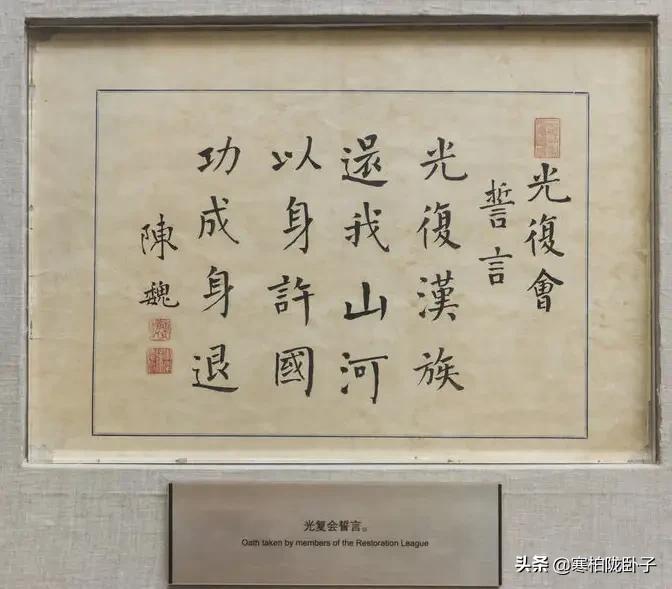 光復會
誓言
光復漢族
還我山河
以身許國
功成身退
陳魏
光复会誓言。
Oath taken by members of the Restoration League
头条 @寒柏陇卧子